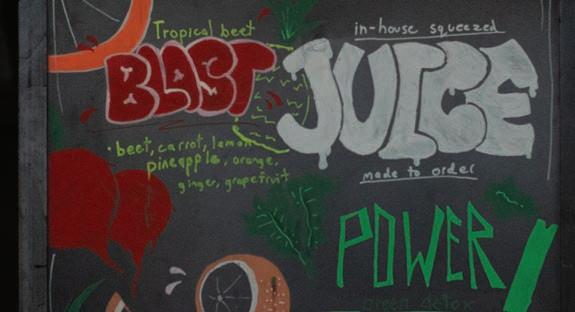 Tropical beet
BLAST
• beet, carrot, lemon
pineapple, orange,
ginger, grapefruit
in-house squeezed
JUICE
made to order
POWER
green detox